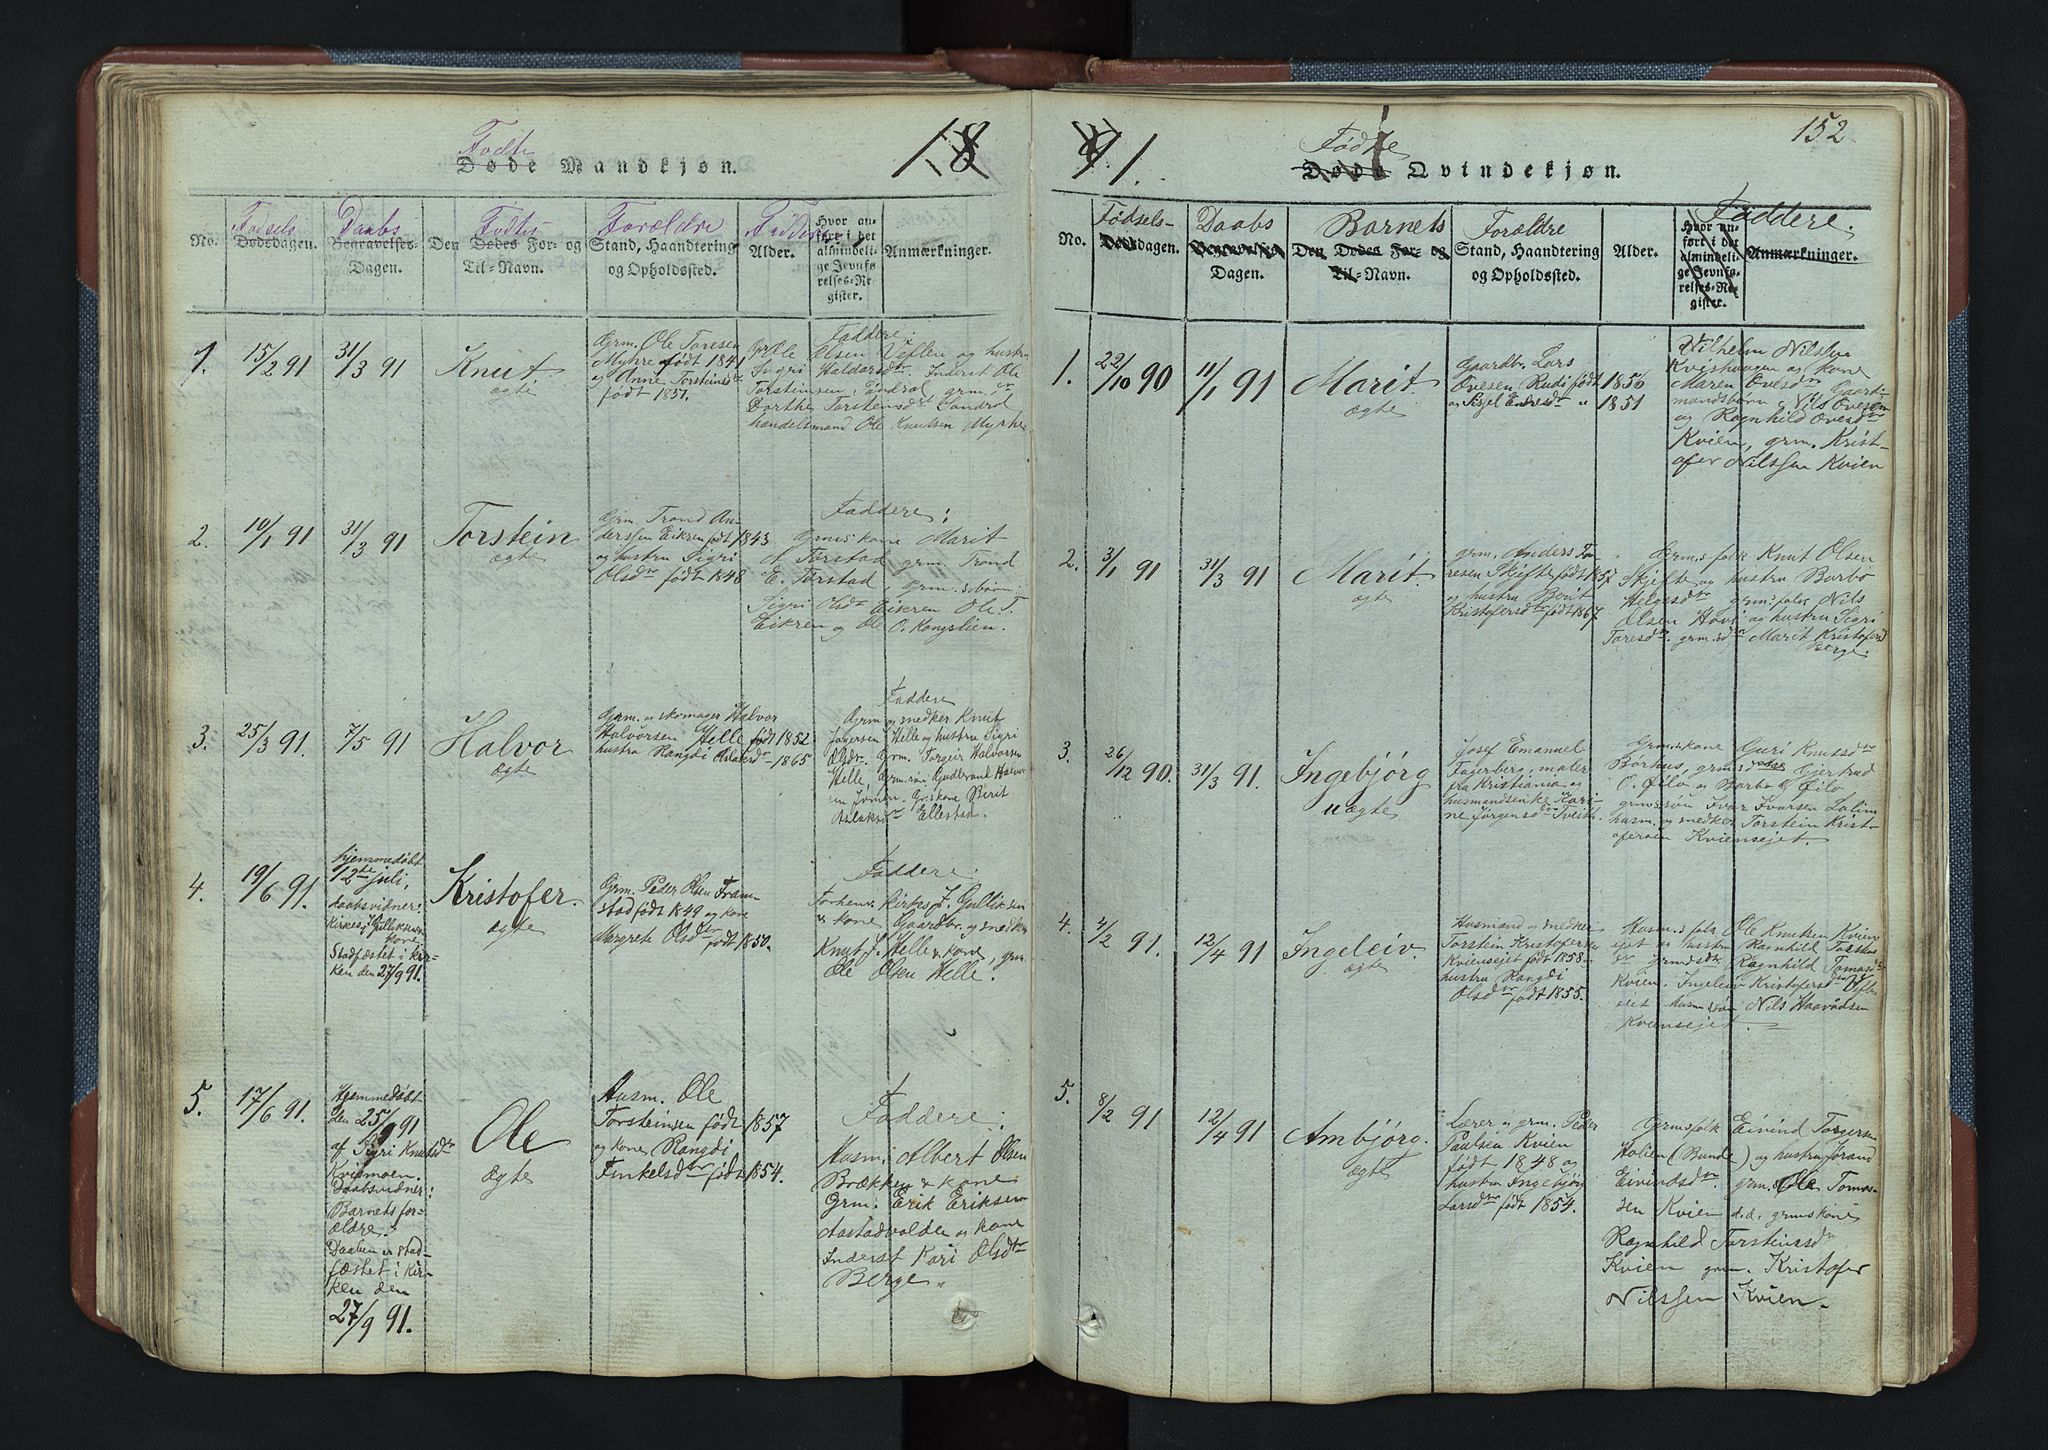 18
Fødte
Døde Mandkjøn.
No.
Fødsels
Dødsdagen.
Daabs
Begravelses-
Dagen.
Fødtes
Den Dødes For- og
Til-Navn.
Forældre
Stand, Haandtering
og Opholdssted.
Faddere
Alder.
Hvor an-
ført i det
almindeli-
ge Jevnfø-
relses-Re-
gister.
Anmærkninger.
1.
15/2 91
31/3 91
Knut
ægte
Grm. Ole Toresen
Myhre født 1841
og Anne Torsteinsdtr
født 1851.
Faddere:
Ole Olsen Veflen og hustru
Sigri Haldorsdtr Inderst Ole
Torsteinsen Tondrol grm.
Dorthe Torsteinsdtr Tondrol
handelsmand Ole Knutsen Myrhe
2.
10/1 91
31/3 91
Torstein
ægte
Grm. Trond An-
derssen Eikren født 1843
og hustru Sigri
Olsdtr født 1848
Faddere:
Grmskone Marit
Torstad grm. Trond
E. Torstad, Grm.sbørn
Sigri Olsdtr Eikren Ole T.
Eikren og Ole O. Kongslien.
3.
25/3 91.
7/5 91
Halvor
ægte
Grm. og skomager Halvor
Halvorsen Helle født 1852
hustru Rangdi Aslaksdtr 1865
Faddere
Grm og snedker Knut
Jøgersen Helle og hustru Sigri
Olsdtr. Grm. Torgeir Halvorsen
Helle Grm.søn Gudbrand Halvor
sen Jømen. Gr.skone Berit
Aslaksdtr Ellestad.
4.
19/6 91.
hjemmedøbt
12te juli,
daabsvidner:
Kirkesj Gulliksen
kone
Stadfæstet i kir-
ken den 27/9 91.
Kristofer.
ægte
Grm. Peder Olsen Fram-
stad født 1849 og kone
Margrete Olsdtr født 1850.
Faddere:
Forhenv. Kirkes. J. Gulliksen
& kone Gaardbr. og snedker
Knut J. Helle & kone, grm.
Ole Olsen Helle.
5.
17/6 91.
Hjemmedøbt
den 25/9 91
af Sigri Knutsdtr
Kvismoen.
Daabsvidner:
Barnets for-
ældre.
Daaben er stad-
fæstet i Kir-
ken den
27/9 91.
Ole
ægte
Husm. Ole
Torsteinsen født 1857
og kone Rangdi
Finkelsdtr født 1854.
Faddere:
Husm. Albert Olsen
Brækken & kone
Grm. Erik Eriksen
Aastadvolden og kone
Inderst Kari Olsdtr
Berge
152
91.
Fødte
Døde Qvindekjøn.
No.
Fødsels-
Dødsdagen.
Daabs
Begravelses
Dagen.
Barnets
Den Dødes For- og
Til-Navn.
Forældre
Stand, Haandtering
og Opholdssted.
Alder.
Hvor an-
ført i det
almindeli-
ge Jevnfø-
relses-Re-
gister.
Faddere.
Anmærkninger.
1.
22/10 90
11/1 91
Marit
ægte
Gaardbr. Lars
Ovesen Rudi født 1856
og Sissel Endresdtr " 1851
Vilhelm Nilssen
Kveshaugen og kone
Maren Ovesdtr Gaard-
mandsbørn Nils Ovesen
og Ragnhild Ovesdtr
Kvien, grm. Krist-
ofer Nilssen Kvien
2.
3/1 91
31/3 91
Marit
ægte
grm. Anders To-
resen Skjefte født 1857
og hustru Berit
Kristofersdtr født 1867
Grm.s folk Knut Olsen
Skjefte og hustru Barbo
Helgesdtr grm.sfolk Nils
Olsen Hovi og hustru Sigri
Toresdtr. grm.sdtr Marit Kristofersd
Berge.
3.
26/12 90.
31/3 91.
Ingebjørg
uægte
Josef Emanuel
Fagerberg, maler
fra Kristiania og
husmandsenke Kari-
ne Jørgensdtr Tveit
Grmskone Guri Knutsdtr
Børhus, grmsd Gjertrud
O. Øilo og Barbo O Øilo
grmssøn Ivar Ivarsen Lalim
husm. og snedker Torstein Krist-
ofersen Kviensejet.
4.
4/2 91.
12/4 91
Ingeleiv.
ægte
Husmand og snedker
Torstein Kristofersen
Kviensejet født 1858
hustru Rangdi
Olsdtr født 1855.
Husm.s folk Ole Knutsen Kvien
ejet og hustru Ragnhild Torstens
dtr grmdsdtr Ragnhild Tomasdtr
Kvien. Ingeleiv Kristofersdtr Vefle
eiet husm.søn Nils Haavadsen
Kviensejet.
5.
8/2 91
12/4 91
Ambjørg.
ægte
Lærer og grm. Peder
Paulsen Kvien
født 1848 og
hustru Ingebjørg
Larsdtr født 1854.
Grmsfolk Eivind Torgersen
Holien (Bunde) og hustru Jørand
Eivindsdtr. grm.s Ole Tomas-
sen Kvien d.d. grmskone
Ragnhild Torsteinsdtr
Kvien grm. Kristofer
Nilssen Kvien.